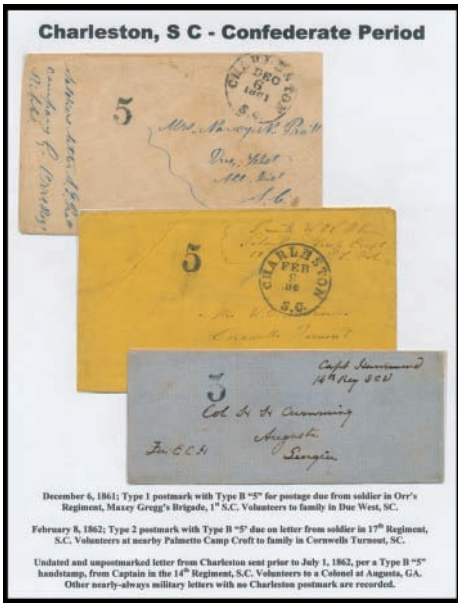 Charleston, S C - Confederate Period
CHARLESTON
DEC
6
1861
S.C.
5
Mrs. Nancy N. Pratt
Due West
Abb. Dist
S.C.
5
CHARLESTON
FEB
8
S.C.
Cornwells Turnout
5
Capt Hammond
14th Reg SCV
Col H H Cumming
Augusta
Georgia
For E.C.H
December 6, 1861; Type 1 postmark with Type B “5” for postage due from soldier in Orr's
Regiment, Maxey Gregg's Brigade, 1st S.C. Volunteers to family in Due West, SC.
February 8, 1862; Type 2 postmark with Type B “5’ due on letter from soldier in 17th Regiment,
S.C. Volunteers at nearby Palmetto Camp Croft to family in Cornwells Turnout, SC.
Undated and unpostmarked letter from Charleston sent prior to July 1, 1862, per a Type B “5”
handstamp, from Captain in the 14th Regiment, S.C. Volunteers to a Colonel at Augusta, GA.
Other nearly-always military letters with no Charleston postmark are recorded.